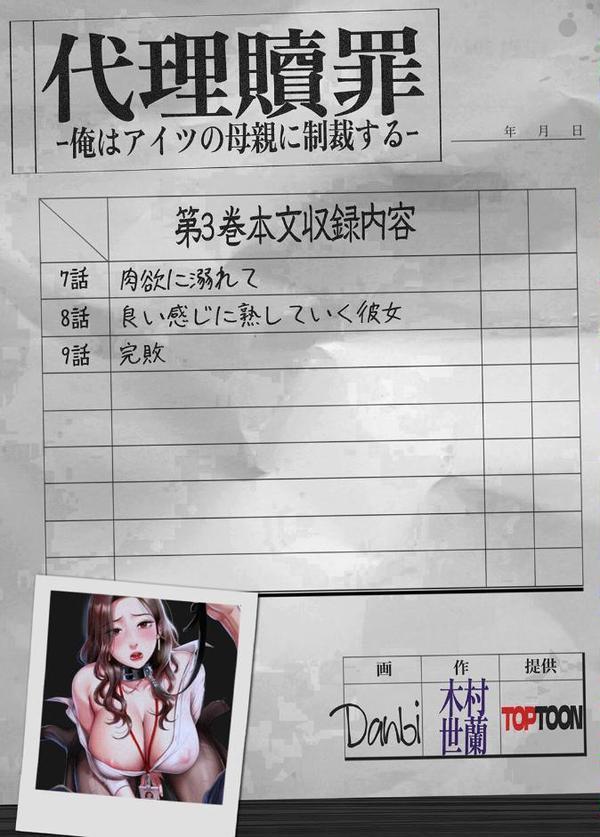 代理贖罪
-俺はアイツの母親に制裁する-
年 月 日
第3巻本文収録内容
7話 肉欲に溺れて
8話 良い感じに熟していく彼女
9話 完敗
画 作 提供
Danbi 木村世蘭 TOPTOON